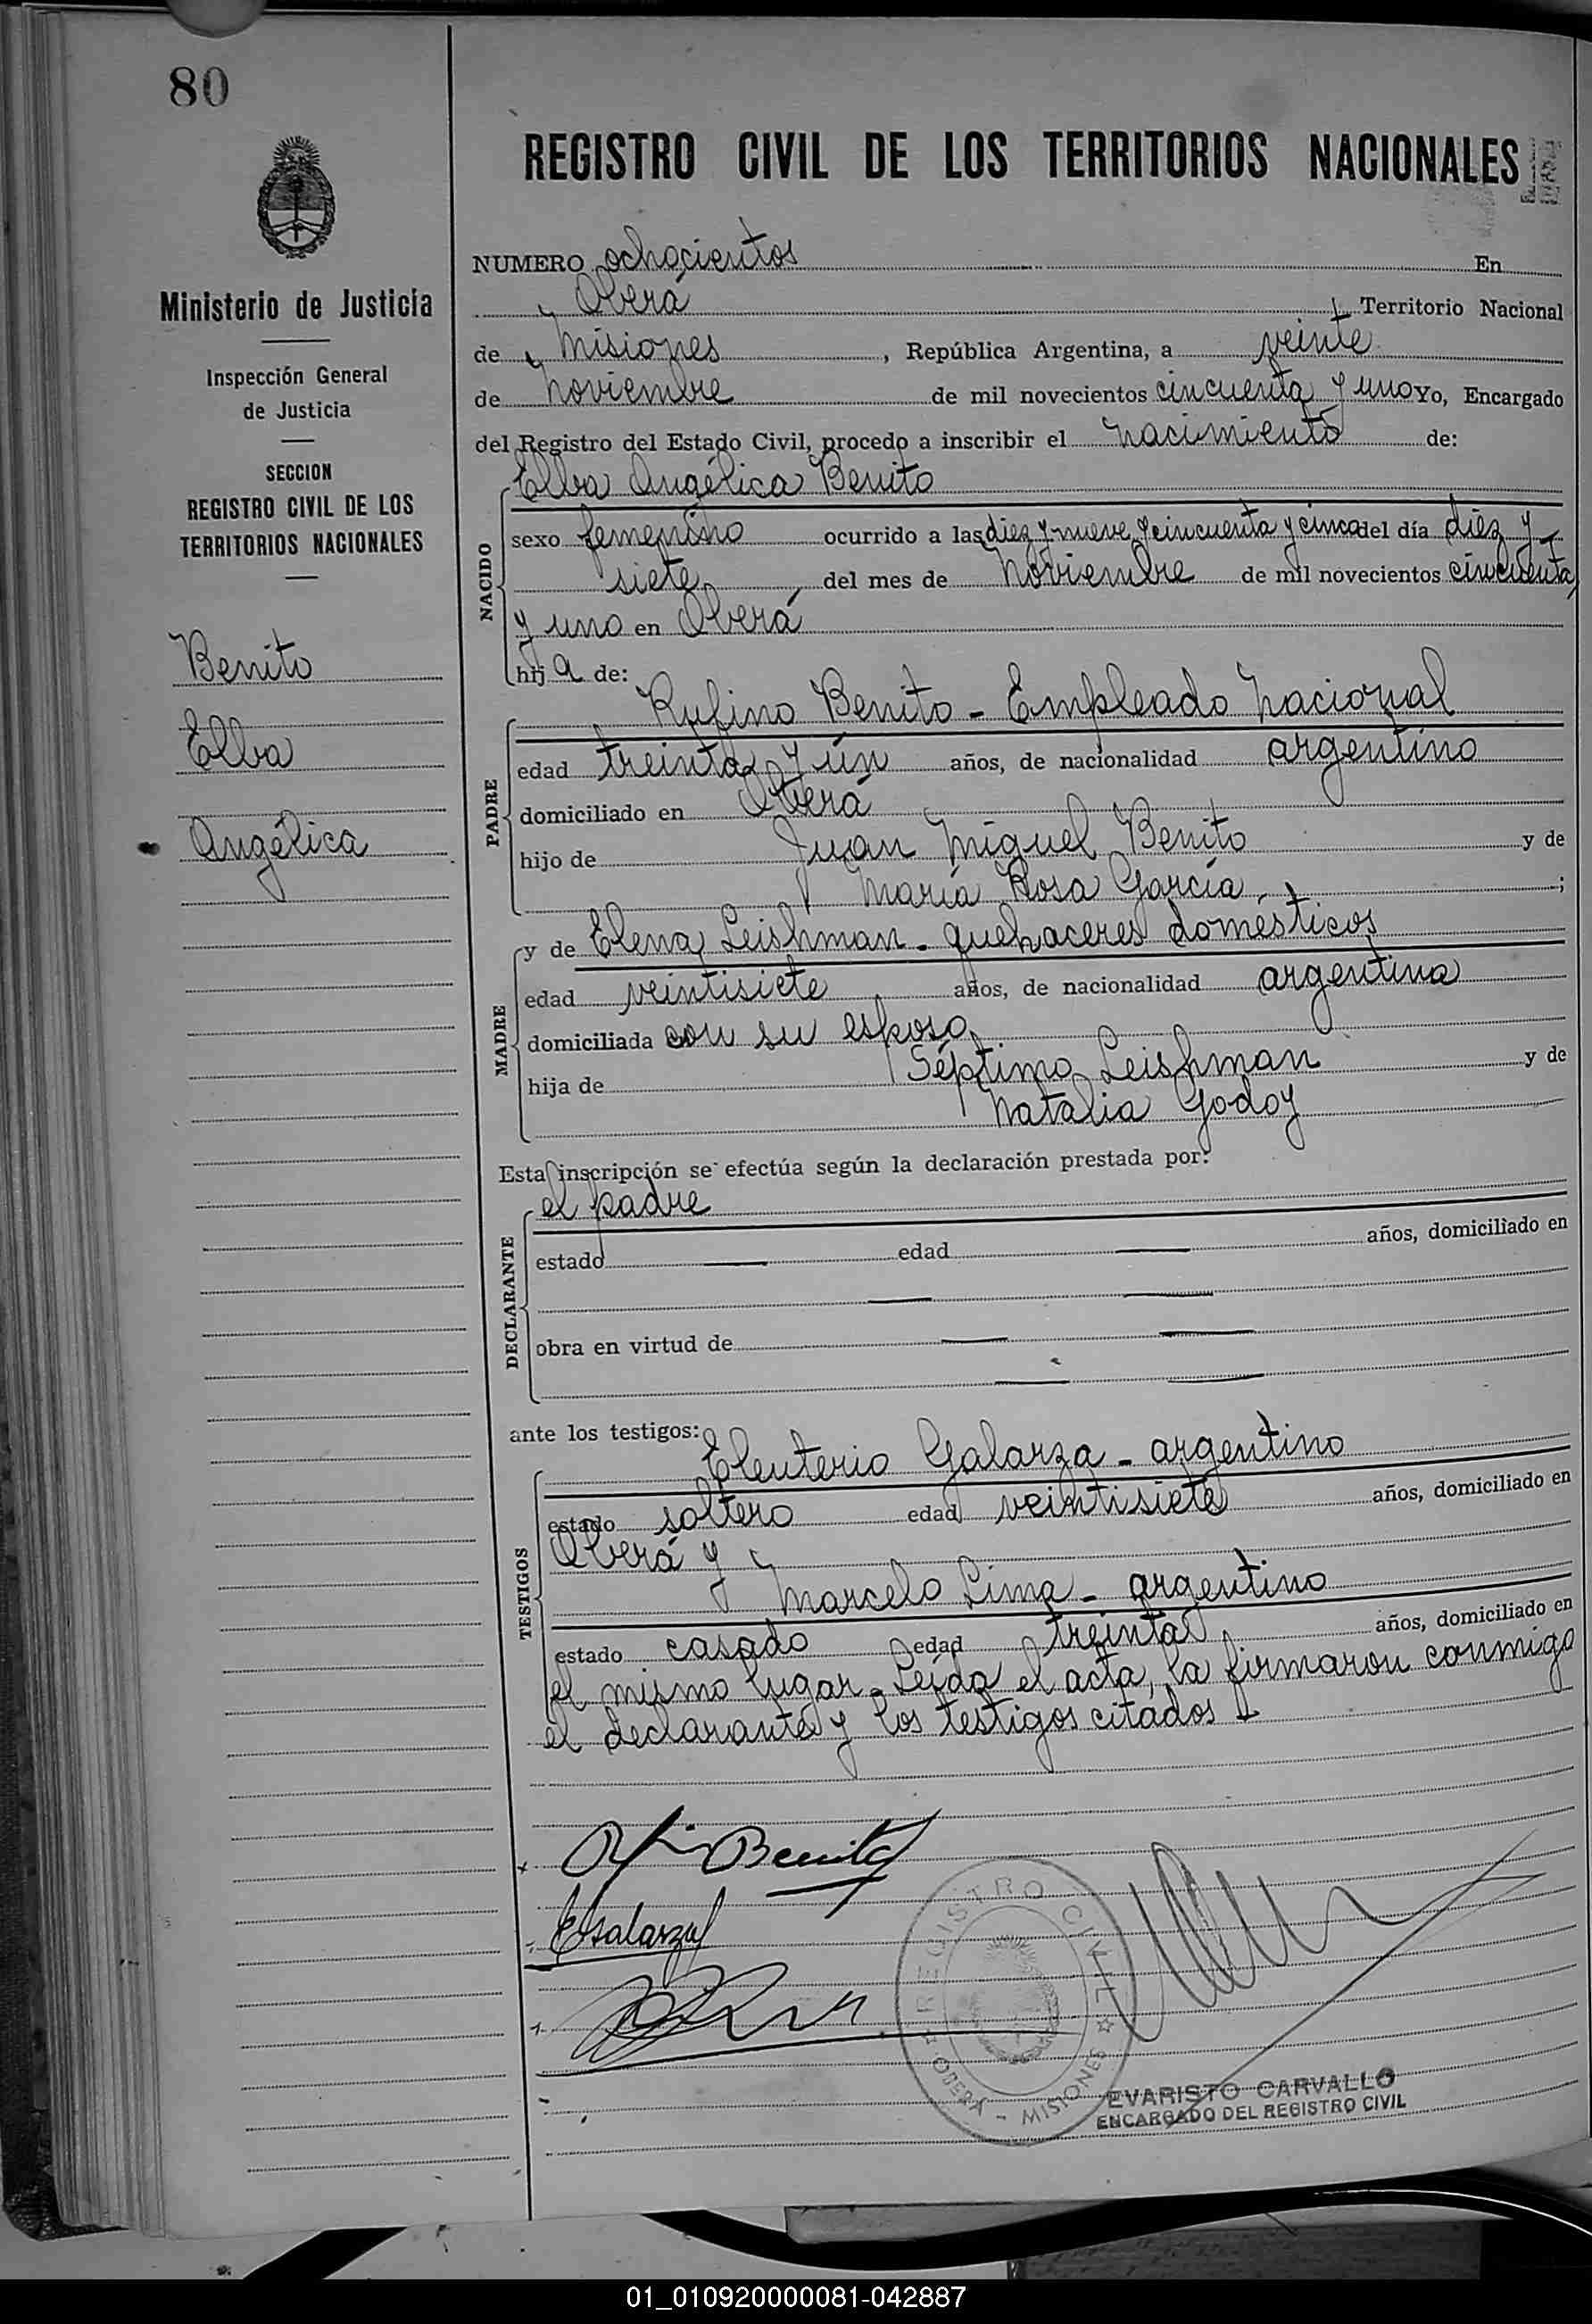 80
REGISTRO CIVIL DE LOS TERRITORIOS NACIONALES
Ministerio de Justicia
Inspección General
de Justicia
SECCION
REGISTRO CIVIL DE LOS
TERRITORIOS NACIONALES
Benito
Elba
Angélica
NUMERO ochocientos En
Oberá Territorio Nacional
de Misiones, República Argentina, a veinte
de Noviembre de mil novecientos cincuenta y uno Yo, Encargado
del Registro del Estado Civil, procedo a inscribir el nacimiento de:
NACIDO
Elba Angélica Benito
sexo femenino ocurrido a las diez y nueve y cincuenta y cinco del día diez y
siete del mes de Noviembre de mil novecientos cincuenta
y uno en Oberá
hija de:
PADRE
Rufino Benito - Empleado Nacional
edad treinta y ún años, de nacionalidad argentino
domiciliado en Oberá
hijo de Juan Miguel Benito y de
María Rosa García ;
MADRE
y de Elena Leishman - quehaceres domésticos
edad veintisiete años, de nacionalidad argentina
domiciliada con su esposo
hija de Séptimo Leishman y de
Natalia Godoy
Esta inscripción se efectúa según la declaración prestada por:
DECLARANTE
el padre
estado edad años, domiciliado en
obra en virtud de
ante los testigos:
TESTIGOS
Eleuterio Galarza - argentino
estado soltero edad veintisiete años, domiciliado en
Oberá y
Marcelo Lima - argentino
estado casado edad treinta años, domiciliado en
el mismo lugar - Leída el acta, la firmaron conmigo
el declarante y los testigos citados
Benito
EGalarza
REGISTRO CIVIL
OBERA - MISIONES
EVARISTO CARVALLO
ENCARGADO DEL REGISTRO CIVIL
01_010920000081-042887